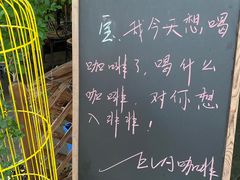 宝.我今天想喝
咖啡了,喝什么
咖啡.对你想
入啡啡!
咖啡